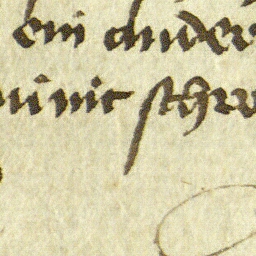 ein ander
nit schre